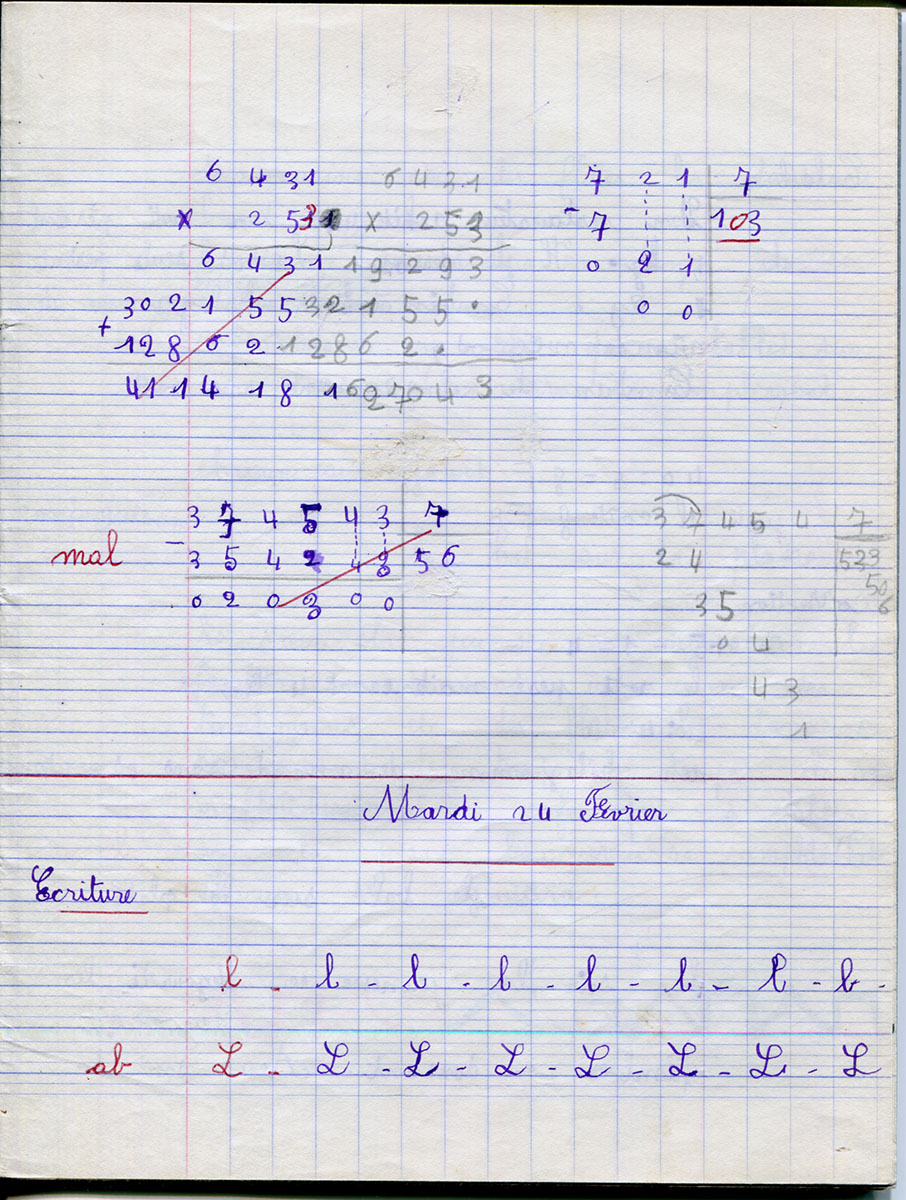 6 4 31 6 4 3 1 7 2 1 7
x 2 53 x 2 5 3 - 7 103
6 4 3 1 1 9 2 9 3 0 2 1
30 2 1 5 5 32 1 5 5 . 0 0
+ 1 2 8 6 2 1 2 8 6 2 .
41 1 4 1 8 1 6 2 7 0 4 3
3 7 4 5 4 3 7 3 7 4 5 4 7
mal - 3 5 4 2 4 3 5 6 2 4 533
0 2 0 3 0 0 3 5 50
0 4 6
4 3
1
Mardi 24 Février
Ecriture
l - l - l - l - l - l - l - l -
ab L - L - L - L - L - L - L - L